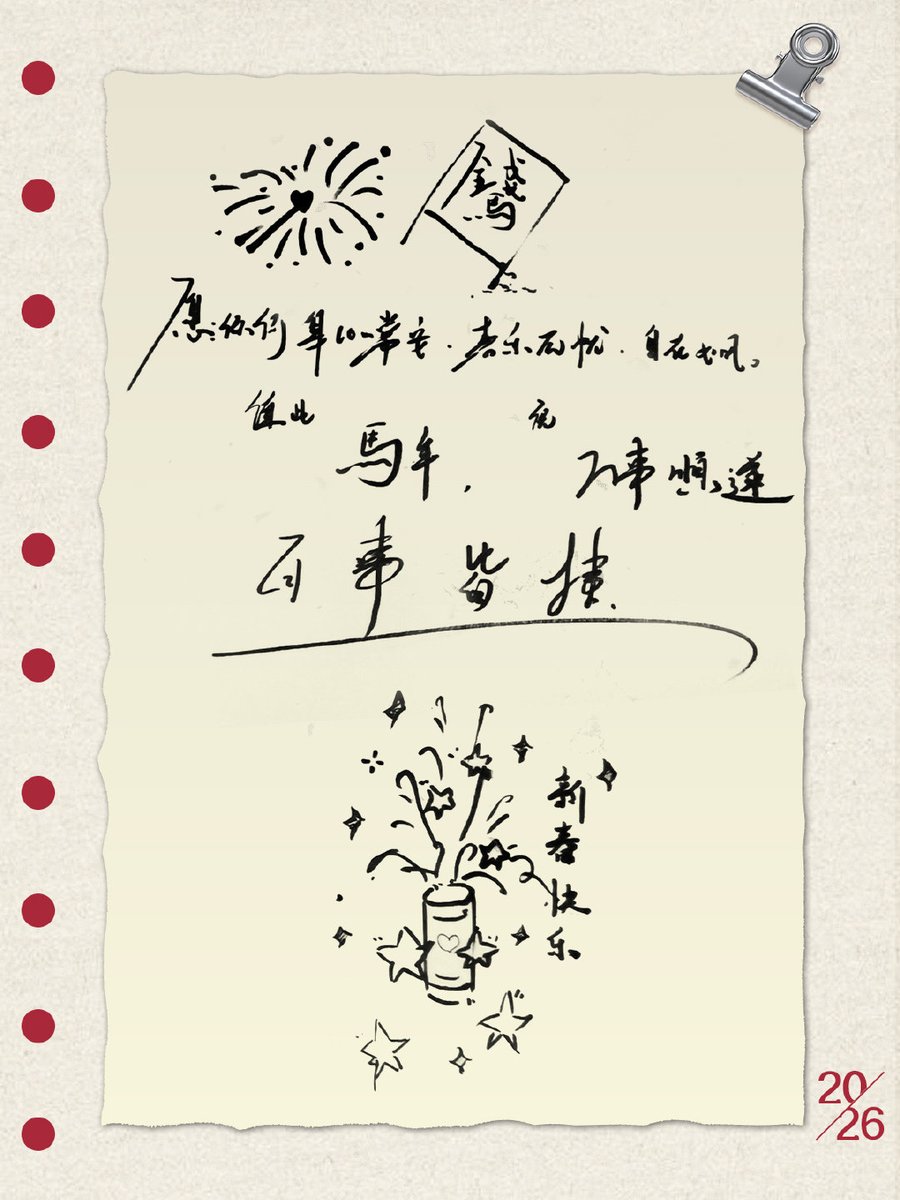 愿你们年年常安.喜乐无忧.自在如风。
值此 馬年, 祝 万事顺遂
百事皆捷.
新春快乐
20/26